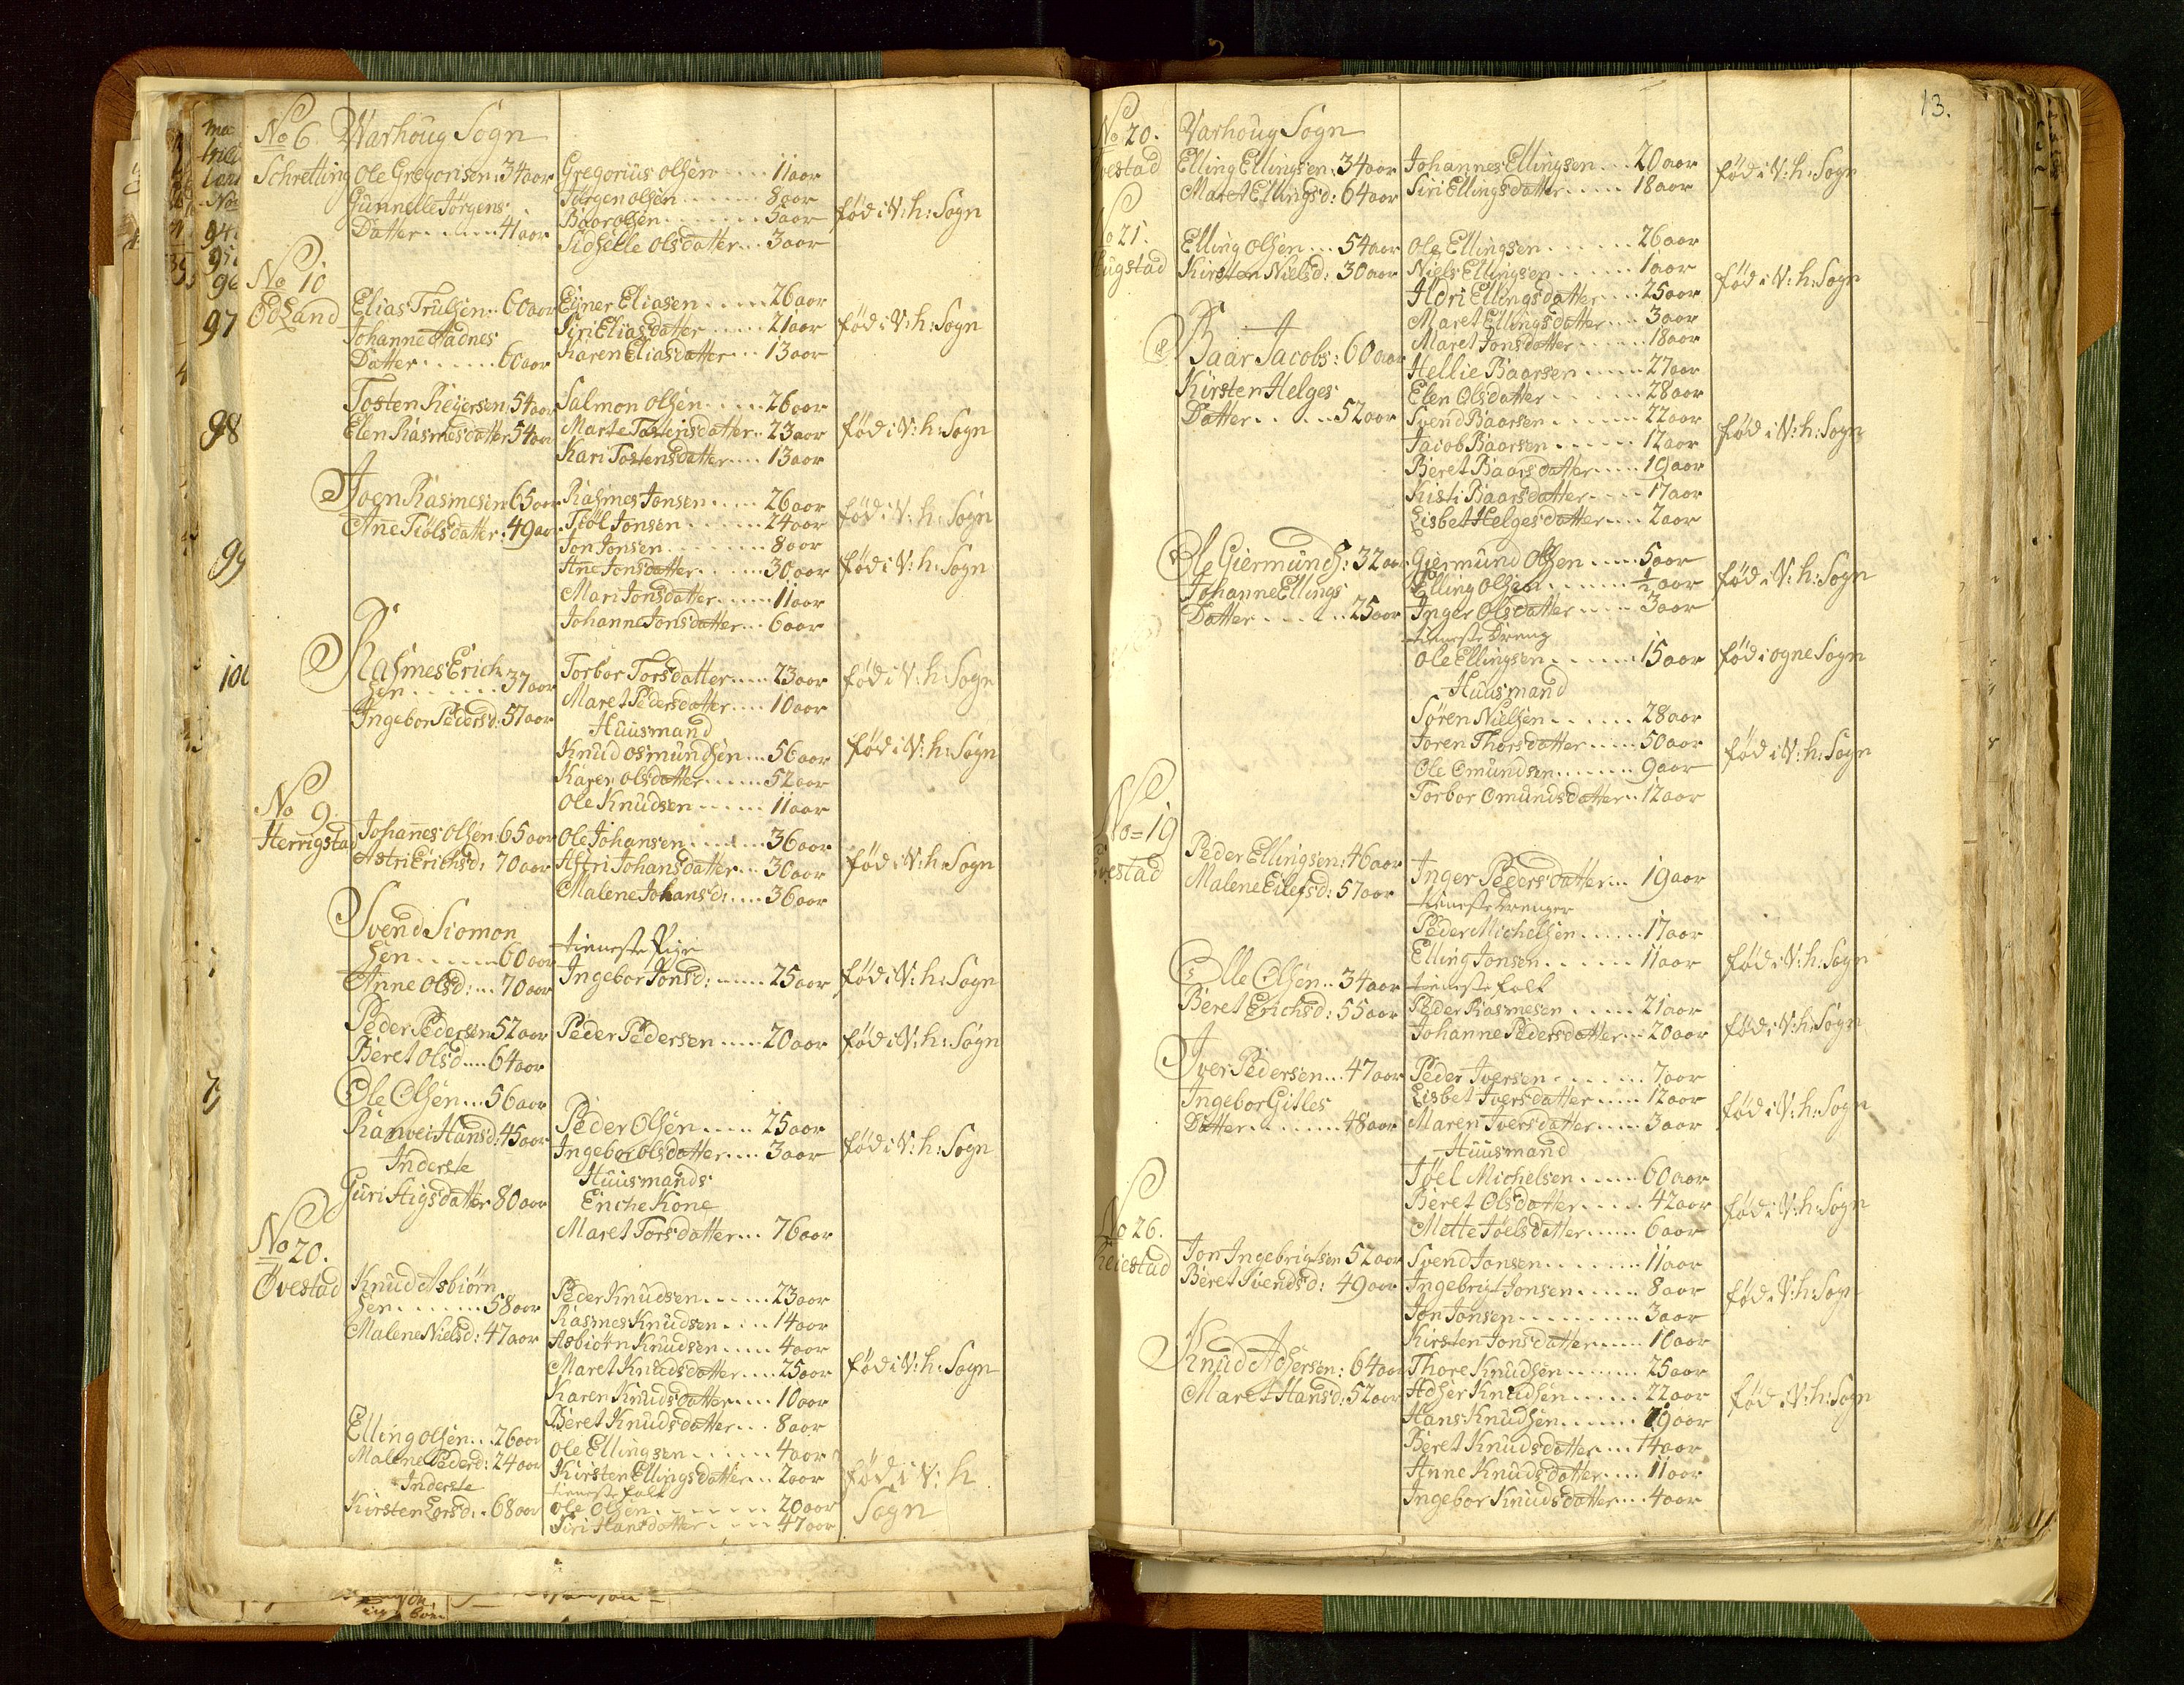 No 6 Warhoug Sogn
Schretting Ole Gregorisen: 34 aar Gregorius olsen .... 11 aar
Gunnelle Jørgens Jørgen olsen ...... 8 aar
Datter ...... 41 aar Baar olsen ....... 5 aar fød i V: h: Sogn
Sidselle olsdatter ... 3 aar
No 10
Ødland Elias Trulsen .. 60 aar Ejner Eliasen ..... 26 aar
Johanne Aadnes Siri Eliasdatter ..... 21 aar fød i V: h: Sogn
Datter ...... 60 aar Karen Eliasdatter ... 13 aar
Tosten Reijersen, 54 aar Salmon olsen ..... 26 aar
Elen Rasmesdatter 54 aar Marte Tostensdatter .. 23 aar fød i V: h: Sogn
Kari Tostensdatter .... 13 aar
Joen Rasmesen 65 aar Rasmes Jonsen ..... 26 aar fød i V: h: Sogn
Ane Tiølsdatter: 49 aar Tiøl Jonsen ...... 24 aar
Jon Jonsen ........ 8 aar
Ane Jonsdatter ..... 30 aar fød i V: h: Sogn
Mari Jonsdatter ..... 11 aar
Johanne Jonsdatter ... 6 aar
Rasmes Erich Torbor Torsdatter ..... 23 aar fød i V: h: Sogn
sen ....... 37 aar Maret Pedersdatter .... 10 aar
Ingebor Pedersd: 57 aar Huusmand
Knud osmundsen ... 56 aar fød i V: h: Sogn
Karen olsdatter ...... 52 aar
Ole Knudsen ...... 11 aar
No 9
Herrigstad Johannes olsen 65 aar Ole Johansen ...... 36 aar
Astri Erichsd: 70 aar Astri Johansdatter ... 30 aar fød i V: h: Sogn
Malene Johansd: .... 36 aar
Svend Siomon
sen ...... 60 aar tieneste Pige
Anne olsd: ... 70 aar Ingebor Jonsd: ..... 25 aar fød i V: h: Sogn
Peder Pedersen 52 aar Peder Pedersen ..... 20 aar fød i V: h: Sogn
Beret olsd .... 64 aar
Ole Olsen ... 56 aar
Ranvei Hansd: 45 aar Peder Olsen ..... 25 aar
Inderste Ingebor olsdatter .... 3 aar fød i V: h: Sogn
Guri Stigsdatter 80 aar Huusmands
Enche Kone
Maret Torsdatter ... 76 aar
No 20.
Øvestad Knud Asbiørn Peder Knudsen ...... 23 aar
sen ....... 58 aar Rasmes Knudsen .... 14 aar
Malene Nielsd: 47 aar Asbiørn Knudsen ..... 4 aar
Maret Knudsdatter .... 25 aar fød i V: h: Sogn
Karen Knudsdatter .... 10 aar
Beret Knudsdatter ... 8 aar
Elling olsen ... 26 aar Ole Ellingsen ...... 4 aar
Malene Pedersd: 24 aar Kirsten Ellingsdatter ... 2 aar fød i V: h
Inderste tieneste folk
Kirsten Larsd: . 68 aar Ole Olsen ....... 20 aar Sogn
Siri Hansdatter .... 47 aar
94
95
96
97
98
99
100
13.
No 20. Varhoug Sogn
Elling Ellingsen: 34 aar Johannes Ellingsen ... 20 aar fød i V: h: Sogn
Maret Ellingsd: 64 aar Siri Ellingsdatter ..... 18 aar
No 21.
Elling olsen ... 54 aar Ole Ellingsen ...... 26 aar
Kirsten Nielsd: 30 aar Niels Ellingsen ...... 1 aar fød i V: h: Sogn
Aldri Ellingsdatter .... 25 aar
Maret Ellingsdatter ... 3 aar
Baar Jacobs: 60 aar Maret Jonsdatter ...... 18 aar
Hellie Baarsen ..... 27 aar
Kirsten Helges Elen Olsdatter ...... 28 aar
Datter ...... 52 aar Svend Baarsen ...... 22 aar fød i V: h: Sogn
Jacob Baarsen ...... 12 aar
Beret Baarsdatter ..... 19 aar
Kisti Baarsdatter ..... 17 aar
Lisbet Helgesdatter .... 2 aar
Ole Giermunds: 32 aar Giermund Olsen .... 5 aar
Johanne Ellings Elling olsen ....... 1/2 aar fød i V: h: Sogn
Datter ....... 25 aar Inger Olsdatter ..... 3 aar
tieneste Dreng
Ole Ellingsen ...... 15 aar fød i ogne Sogn
Huusmand
Søren Nielsen ...... 28 aar
Joren Thorsdatter ..... 50 aar fød i V: h: Sogn
Ole Omundsen ....... 9 aar
Torbor Omundsdatter .. 12 aar
No = 19
Peder Ellingsen: 46 aar Inger Pedersdatter ... 19 aar
Malene Eilefsd: 57 aar tieneste Drenger
Peder Michelsen ...... 17 aar
Elling Jonsen ...... 11 aar fød i V: h: Sogn
Olle Olsen .. 34 aar tieneste folk
Beret Erichsd: 55 aar Peder Rasmesen ..... 21 aar fød i V: h: Sogn
Johanne Pedersdatter ... 20 aar
Iver Pedersen ... 47 aar Peder Iversen ....... 7 aar
Ingebor Gitles Lisbet Iversdatter ..... 12 aar fød i V: h: Sogn
Datter ........ 48 aar Maren Iversdatter ..... 3 aar
Huusmand
Joel Michelsen ..... 60 aar
Beret Olsdatter ..... 42 aar fød i V: h: Sogn
Mette Joelsdatter ..... 6 aar
No 26.
Jon Ingebrigtsen 52 aar Svend Jonsen ........ 11 aar
Beret Svendsd: 49 aar Ingebrigt Jonsen ..... 8 aar fød i V: h: Sogn
Jon Jonsen ........ 3 aar
Kirsten Jonsdatter ..... 16 aar
Knud Adsersen: 64 aar Thore Knudsen ...... 25 aar
Maret Hansd: 52 aar Adser Knudsen ...... 22 aar fød i V: h: Sogn
Hans Knudsen ...... 19 aar
Beret Knudsdatter .... 14 aar
Anne Knudsdatter .... 11 aar
Ingebor Knudsdatter ... 4 aar